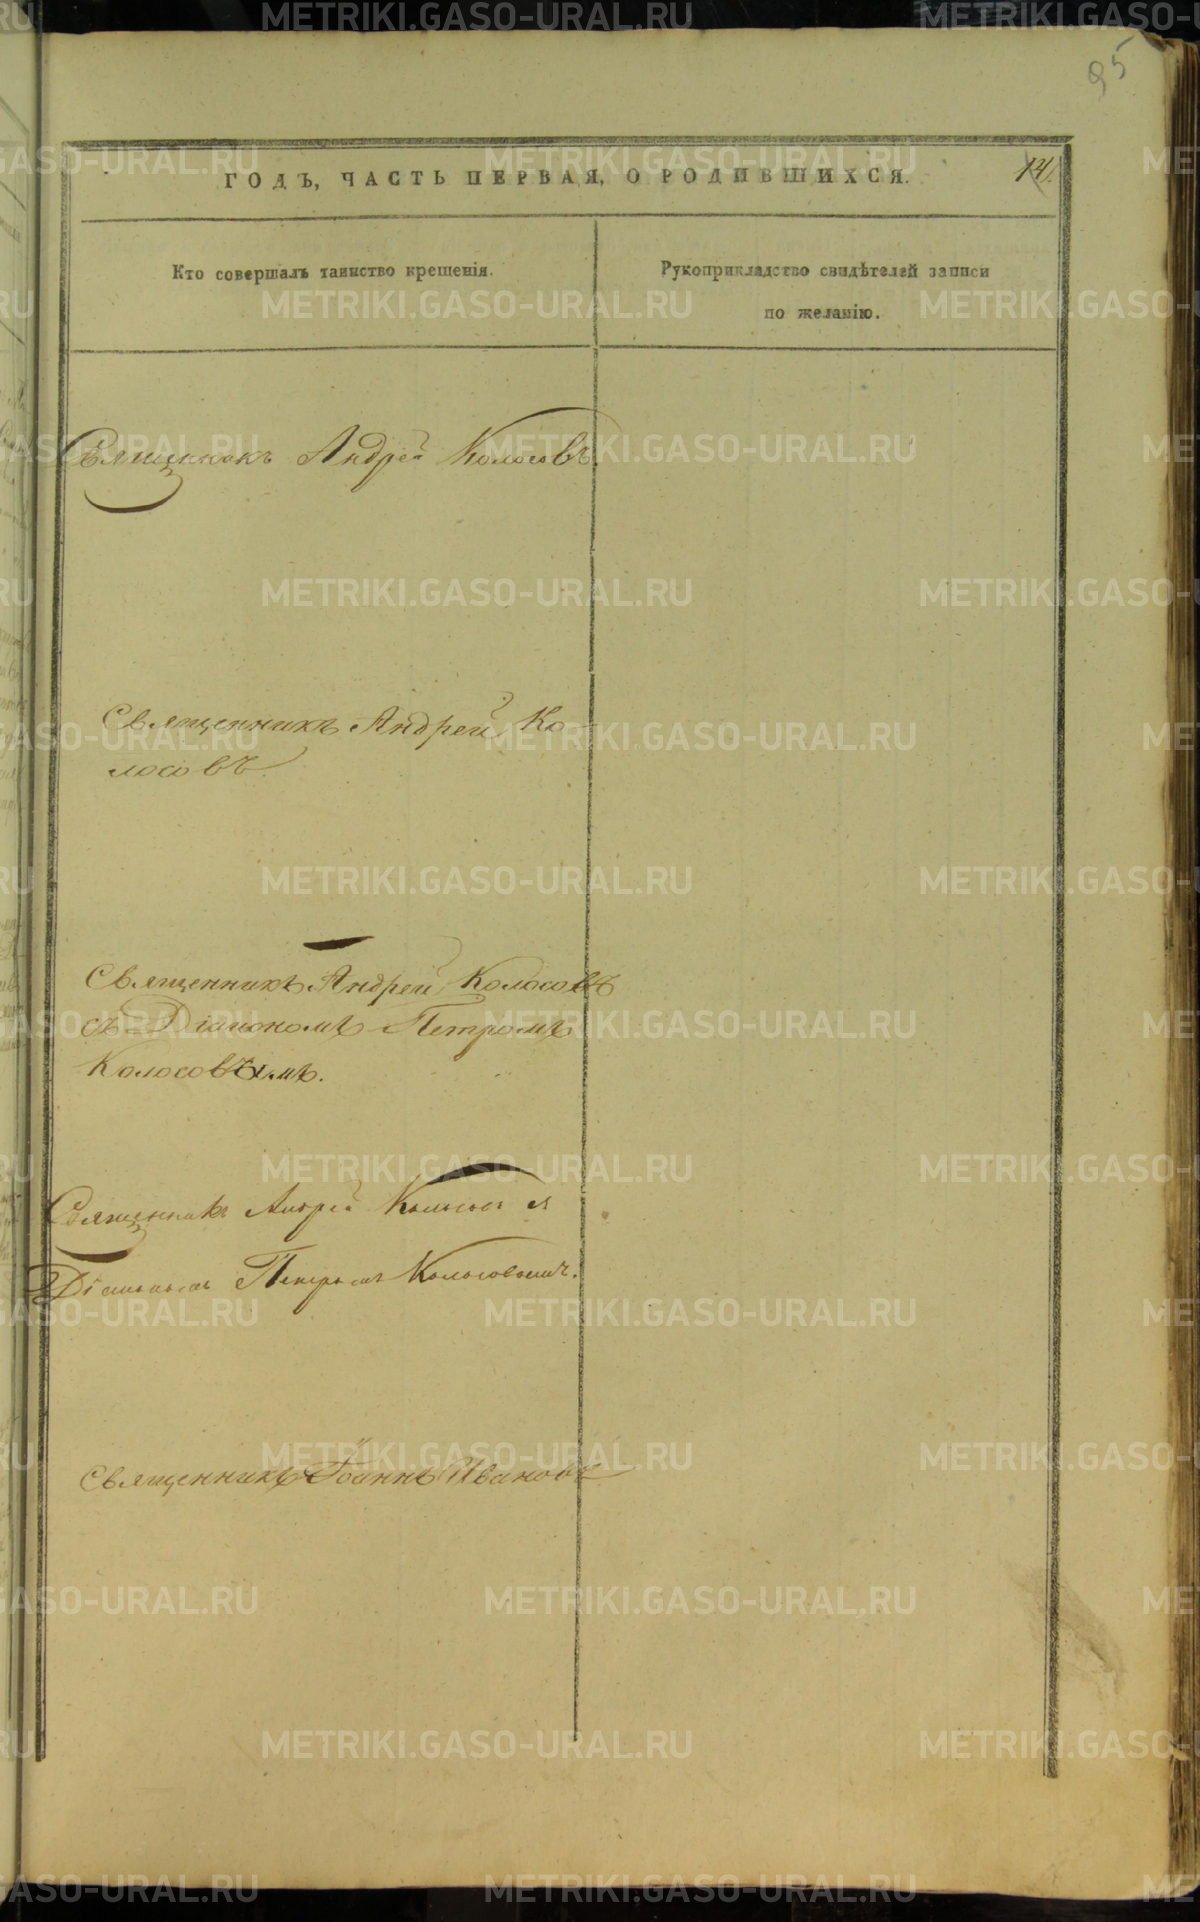 95
ГОДЪ, ЧАСТЬ ПЕРВАЯ, О РОДИВШИХСЯ.
14.
Кто совершалъ таинство крещенія.
Рукоприкладство свидѣтелей записи
по желанію.
Священникъ Андрей Колосовъ.
Священникъ Андрей Ко-
лосовъ.
Священникъ Андрей Колосовъ
съ Діакономъ Петромъ
Колосовымъ.
Священникъ Андрей Колосовъ
Діакономъ Петромъ Колосовымъ.
Священникъ Іоаннъ Ивановъ
METRIKI.GASO-URAL.RU